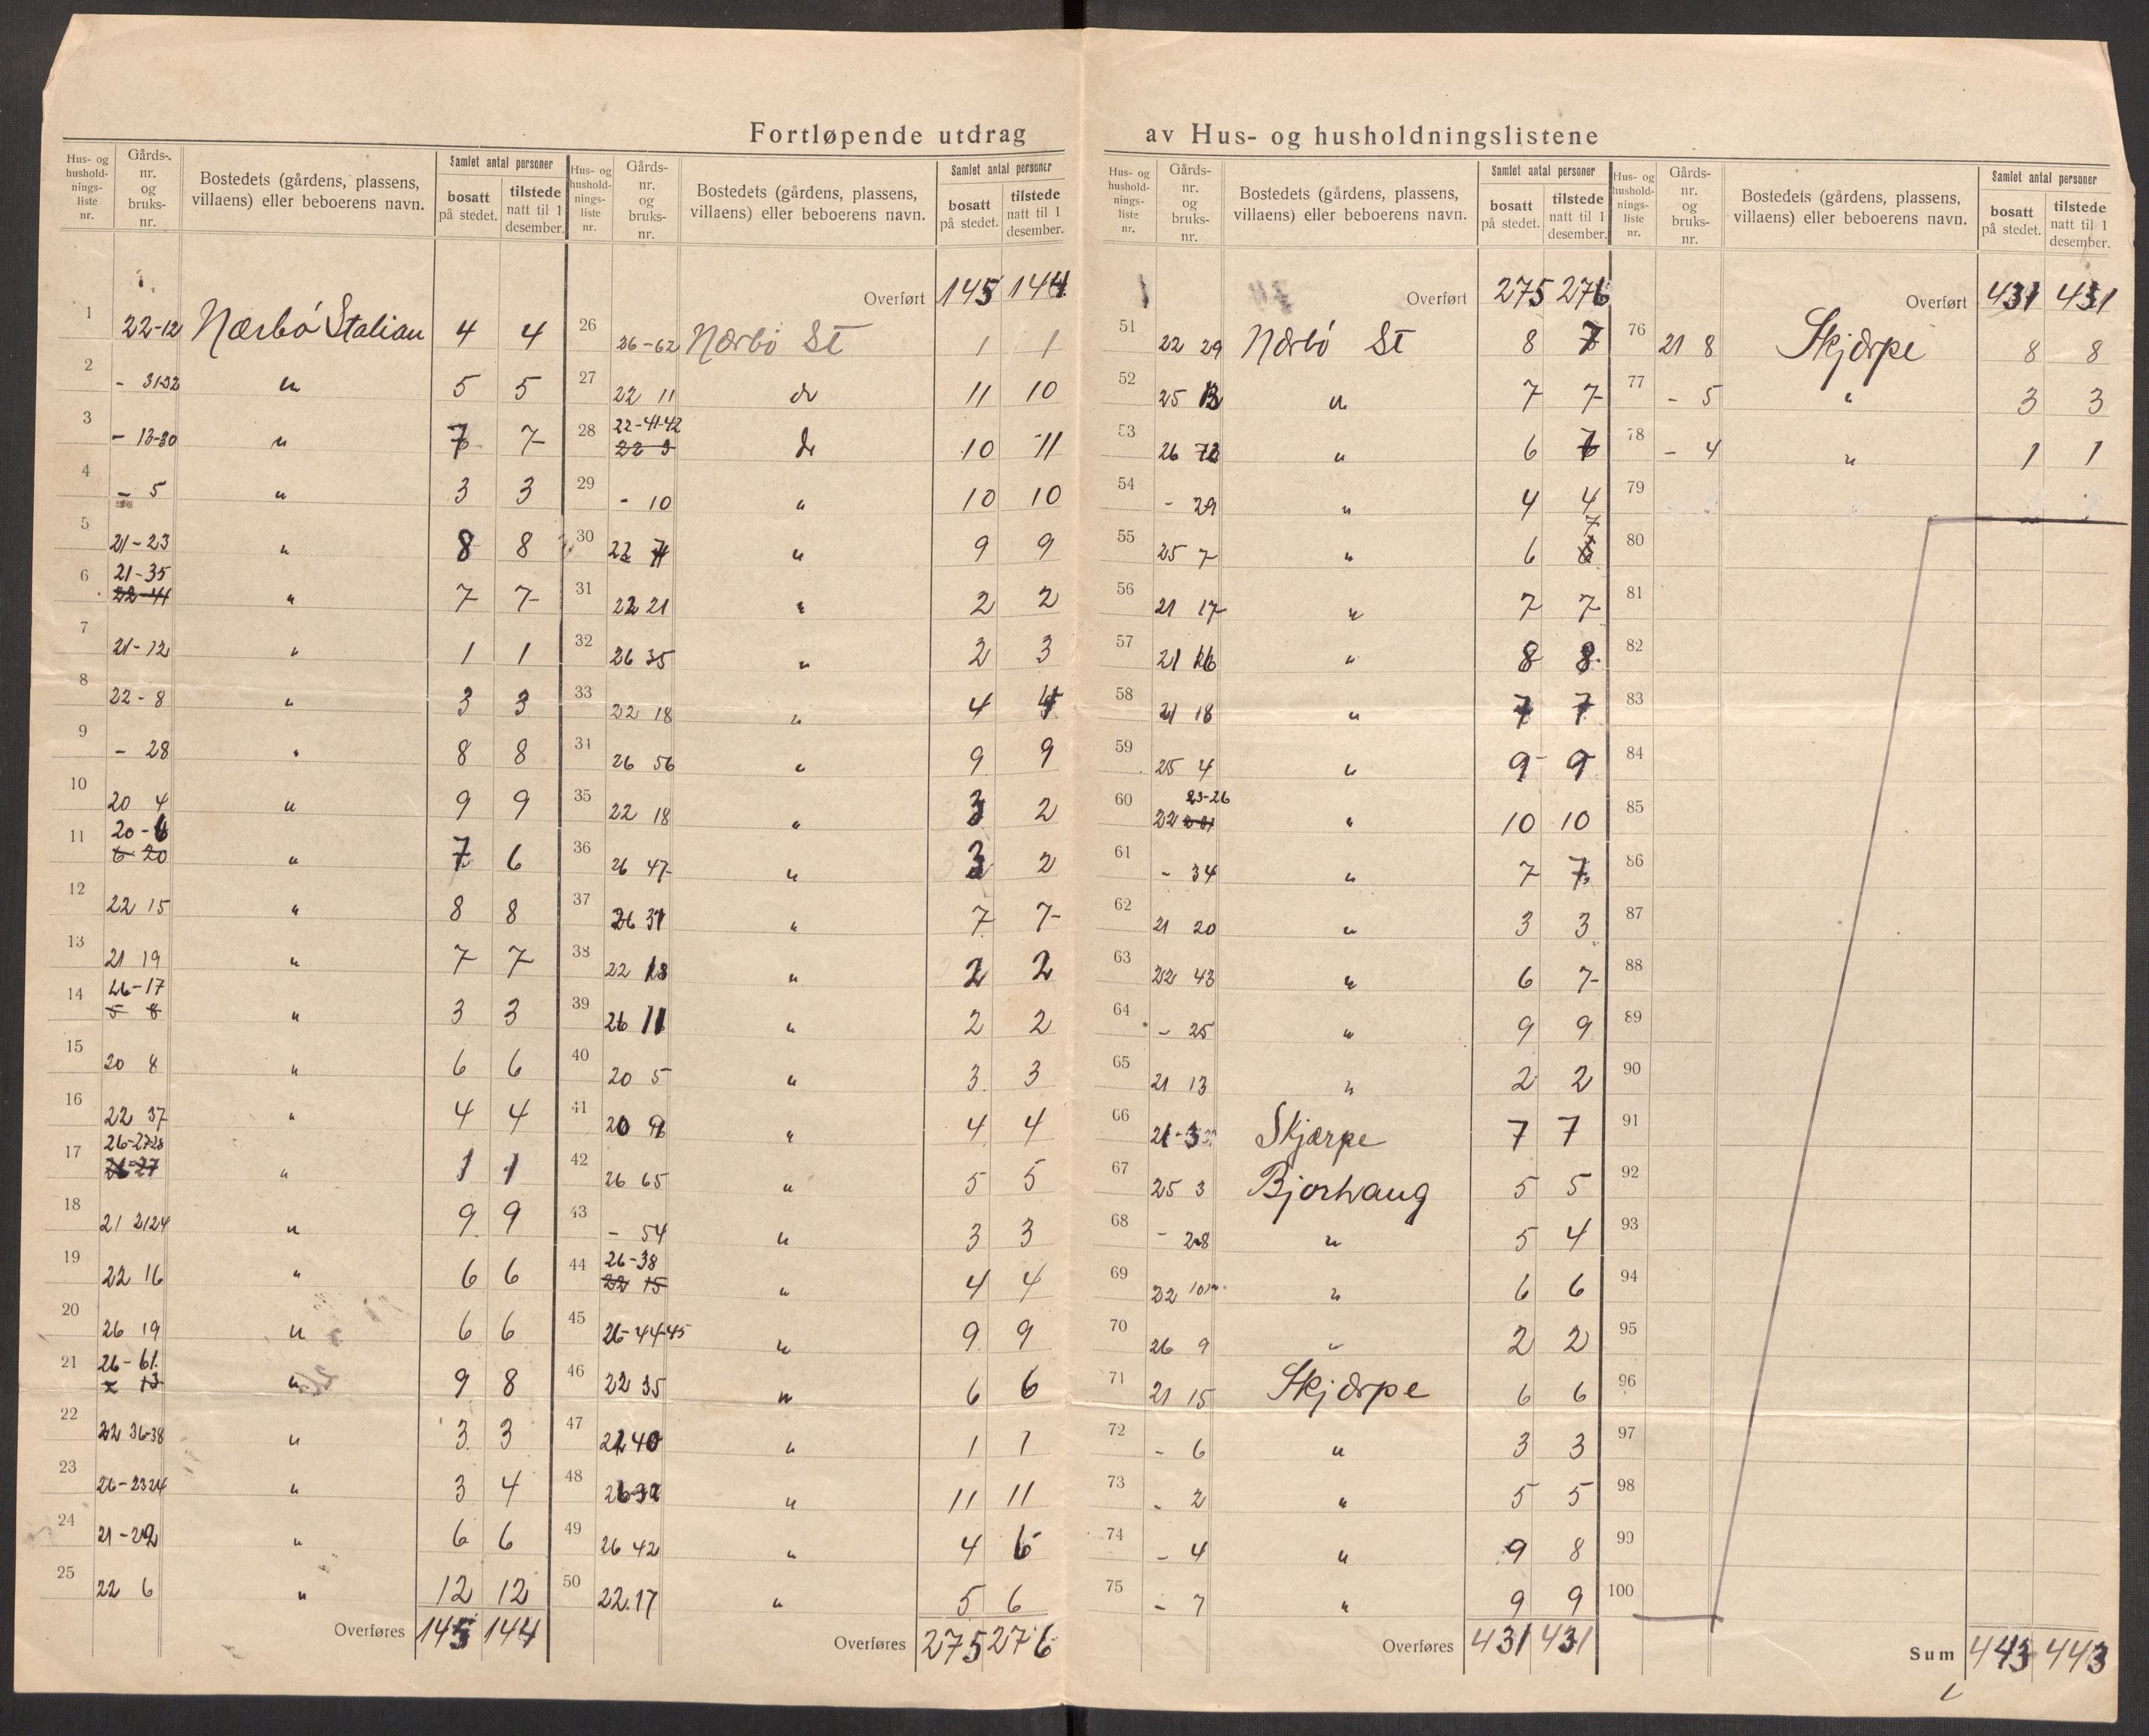 Fortløpende utdrag av Hus- og husholdningslistene
Hus- og husholdnings-liste nr. | Gårds-nr. og bruks-nr. | Bostedets (gårdens, plassens, villaens) eller beboerens navn. | Samlet antal personer bosatt på stedet. | tilstede natt til 1 desember.
1 22-12 Nærbö Stalian 4 4
2 - 31-32 " 5 5
3 - 13-30 " 7 7
4 - 5 " 3 3
5 21-23 " 8 8
6 21-35 22-41 " 7 7
7 21-12 " 1 1
8 22-8 " 3 3
9 - 28 " 8 8
10 20 4 " 9 9
11 20-6 6 20 " 7 6
12 22 15 " 8 8
13 21 19 " 7 7
14 26-17 5 8 " 3 3
15 20 8 " 6 6
16 22 37 " 4 4
17 26-27-28 26-27 " 1 1
18 21 2124 " 9 9
19 22 16 " 6 6
20 26 19 " 6 6
21 26-61 13 " 9 8
22 22 36-38 " 3 3
23 26-2324 " 3 4
24 21-22 " 6 6
25 22 6 " 12 12
Overføres 145 144
Hus- og husholdnings-liste nr. | Gårds-nr. og bruks-nr. | Bostedets (gårdens, plassens, villaens) eller beboerens navn. | Samlet antal personer bosatt på stedet. | tilstede natt til 1 desember.
Overført 145 144
26 26-62 Nærbö St 1 1
27 22 11 do 11 10
28 22-41-42 22 9 do 10 11
29 - 10 " 10 10
30 22 " 9 9
31 22 21 " 2 2
32 26 35 " 2 3
33 22 18 " 4 4
34 26 56 " 9 9
35 22 18 " 3 2
36 26 47 " 3 2
37 26 31 " 7 7
38 22 18 " 2 2
39 26 11 " 2 2
40 20 5 " 3 3
41 20 9 " 4 4
42 26 65 " 5 5
43 - 54 " 3 3
44 26-38 22 15 " 4 4
45 26-44-45 " 9 9
46 22 35 " 6 6
47 22 40 " 1 1
48 26 32 " 11 11
49 26 42 " 4 6
50 22.17 " 5 6
Overføres 275 276
Hus- og husholdnings-liste nr. | Gårds-nr. og bruks-nr. | Bostedets (gårdens, plassens, villaens) eller beboerens navn. | Samlet antal personer bosatt på stedet. | tilstede natt til 1 desember.
Overført 275 276
51 22 29 Nærbö St 8 7
52 25 13 " 7 7
53 26 72 " 6 6
54 - 29 " 4 4
55 25 7 " 6 7
56 21 17 " 7 7
57 21 16 " 8 8
58 21 18 " 7 7
59 25 4 " 9 9
60 23-26 22 " 10 10
61 - 34 " 7 7
62 21 20 " 3 3
63 22 43 " 6 7
64 - 25 " 9 9
65 21 13 " 2 2
66 21-3 Skjærpe 7 7
67 25 3 Bjorhaug 5 5
68 - 28 " 5 4
69 22 " 6 6
70 26 9 " 2 2
71 21 15 Skjærpe 6 6
72 - 6 " 3 3
73 - 2 " 5 5
74 - 4 " 9 8
75 - 7 " 9 9
Overføres 431 431
Hus- og husholdnings-liste nr. | Gårds-nr. og bruks-nr. | Bostedets (gårdens, plassens, villaens) eller beboerens navn. | Samlet antal personer bosatt på stedet. | tilstede natt til 1 desember.
Overført 431 431
76 21 8 Skjærpe 8 8
77 - 5 " 3 3
78 - 4 " 1 1
79
80
81
82
83
84
85
86
87
88
89
90
91
92
93
94
95
96
97
98
99
100
Sum 443 443